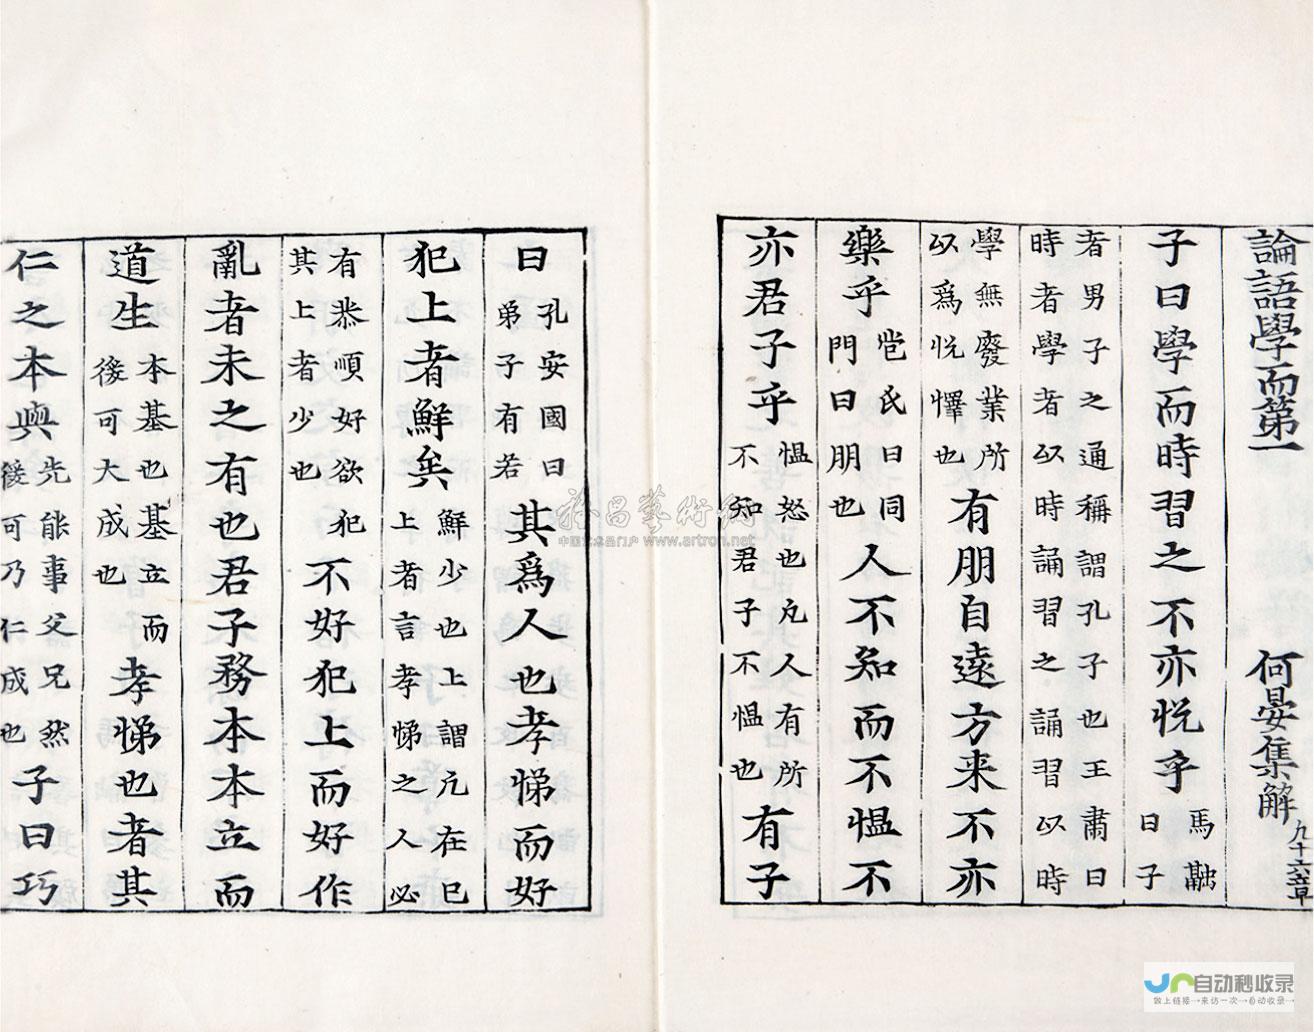 論語學而第一 何晏集解 凡十六章
子曰學而時習之不亦悅乎 馬融曰子
者男子之通稱謂孔子也王肅曰
時者學者以時誦習之誦習以時
學無廢業所以爲悅懌也 有朋自遠方来不亦
樂乎 苞氏曰同門曰朋也 人不知而不愠不
亦君子乎 愠怒也凡人有所不知君子不愠也 有子
曰 孔安國曰弟子有若 其爲人也孝悌而好
犯上者鮮矣 鮮少也上謂凢在已上者言孝悌之人必
有恭順好欲犯其上者少也 不好犯上而好作
亂者未之有也君子務本本立而
道生 本基也基立而後可大成也 孝悌也者其
仁之本與 先能事父兄然後可乃仁成也 子曰巧
雅昌藝術網
中国艺术品门户 www.artron.net
自动秒收录
做上链接→来访一次→自动收录→